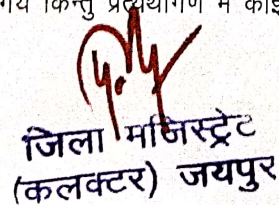 किन्तु प्रत्यर्थीगण में कोई
जिला मजिस्ट्रेट
(कलक्टर) जयपुर